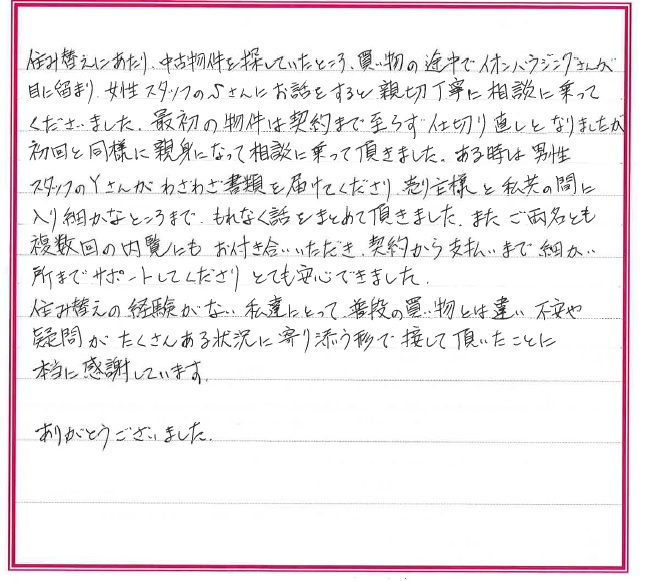 住み替えにあたり、中古物件を探していたところ、買い物の途中でイオンハウジングさんが
目に留まり、女性スタッフのSさんにお話をすると親切丁寧に相談に乗って
くださいました。最初の物件は契約まで至らず仕切り直しとなりましたが
初回と同様に親身になって相談に乗って頂きました。ある時は男性
スタッフのYさんがわざわざ書類を届けてくださり、売り主様と私共の間に
入り細かなところまで、もれなく話をまとめて頂きました。またご両名とも
複数回の内覧にもお付き合いいただき、契約から支払いまで細かい
所までサポートしてくださりとても安心できました。
住み替えの経験がない私達にとって、普段の買い物とは違い不安や
疑問がたくさんある状況に寄り添う形で接して頂いたことに
本当に感謝しています。
ありがとうございました。